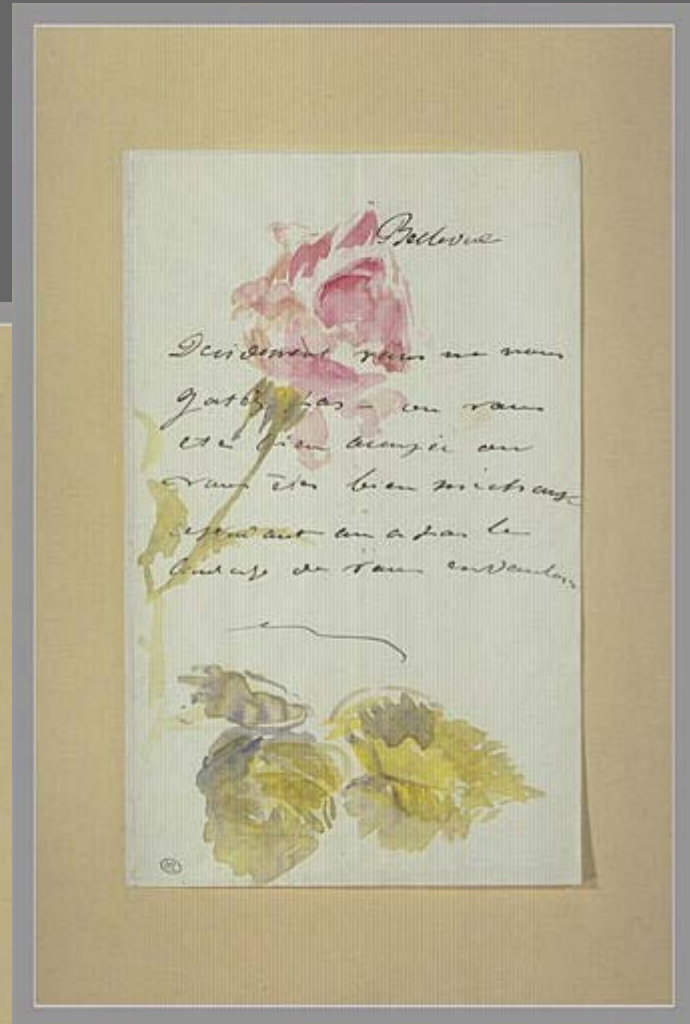 Bellevue
Decidement vous ne nous
gatez pas – ou vous
etes bien occupée ou
vous êtes bien méchante
cependant on a pas le
courage de vous en vouloir